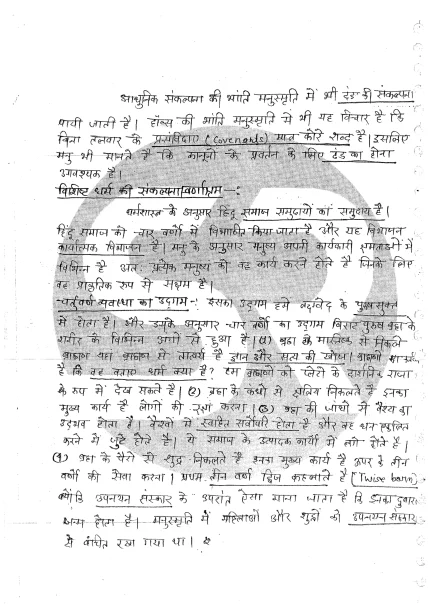 आधुनिक संकल्पना की भांति मनुस्मृति में भी दंड की संकल्पना
पायी जाती है। हॉब्स की भांति मनुस्मृति में भी यह विचार है कि
बिना तलवार के प्रसंविदाएं (Covenants) मात्र कोरे शब्द है। इसलिए
मनु भी मानते है कि कानूनों के प्रवर्तन के लिए दंड का होना
आवश्यक है।
विशिष्ट धर्म की संकल्पना/वर्णाश्रम -:
धर्मशास्त्र के अनुसार हिंदू समाज समुदायों का समुदाय है।
हिंदू समाज को चार वर्णों में विभाजित किया जाता है और यह विभाजन
कार्यात्मक विभाजन है। मनु के अनुसार मनुष्य अपनी कार्यकारी क्षमताओं में
विभिन्न है अतः प्रत्येक मनुष्य को वह कार्य करने होते है जिनके लिए
वह प्राकृतिक रूप से सक्षम है।
चतुर्वर्ण व्यवस्था का उद्गम -: इसका उद्गम हमे ऋग्वेद के पुरुष सुक्त
में होता है। और उसके अनुसार चार वर्णों का उद्गम विराट पुरुष ब्रहा के
शरीर के विभिन्न अंगो से हुआ है। (1) ब्रहा के मस्तिष्क से निकले
ब्राह्मण यहां ब्राह्मण से तात्पर्य है ज्ञान और सत्य की खोज। ब्राह्मणों का
है कि वह बताए धर्म क्या है? हम ब्राह्मणों को प्लेटो के दार्शनिक राजा
के रूप में देख सकते है। (2) ब्रहा के कंधो से क्षत्रिय निकलते है इनका
मुख्य कार्य है लोगों की रक्षा करना। (3) ब्रहा की जांघो से वैश्य का
उद्भव होता है। वैश्यो में स्वहित सर्वोपरि होता है और वह धन
करने में जुटे होते है। ये समाज के उत्पादक कार्यो में लगे होते है।
(4) ब्रहा के पैरो से शुद्र निकलते है इनका मुख्य कार्य है ऊपर के तीन
वर्णों की सेवा करना। प्रथम तीन वर्ण द्विज कहलाते है (Twise born)
क्यों कि उपनयन संस्कार के उपरांत ऐसा माना जाता है कि इनका दुबारा
जन्म होता है। मनुस्मृति में महिलाओं और शुद्रों को उपनयन संस्कार
से वंचित रखा गया था।